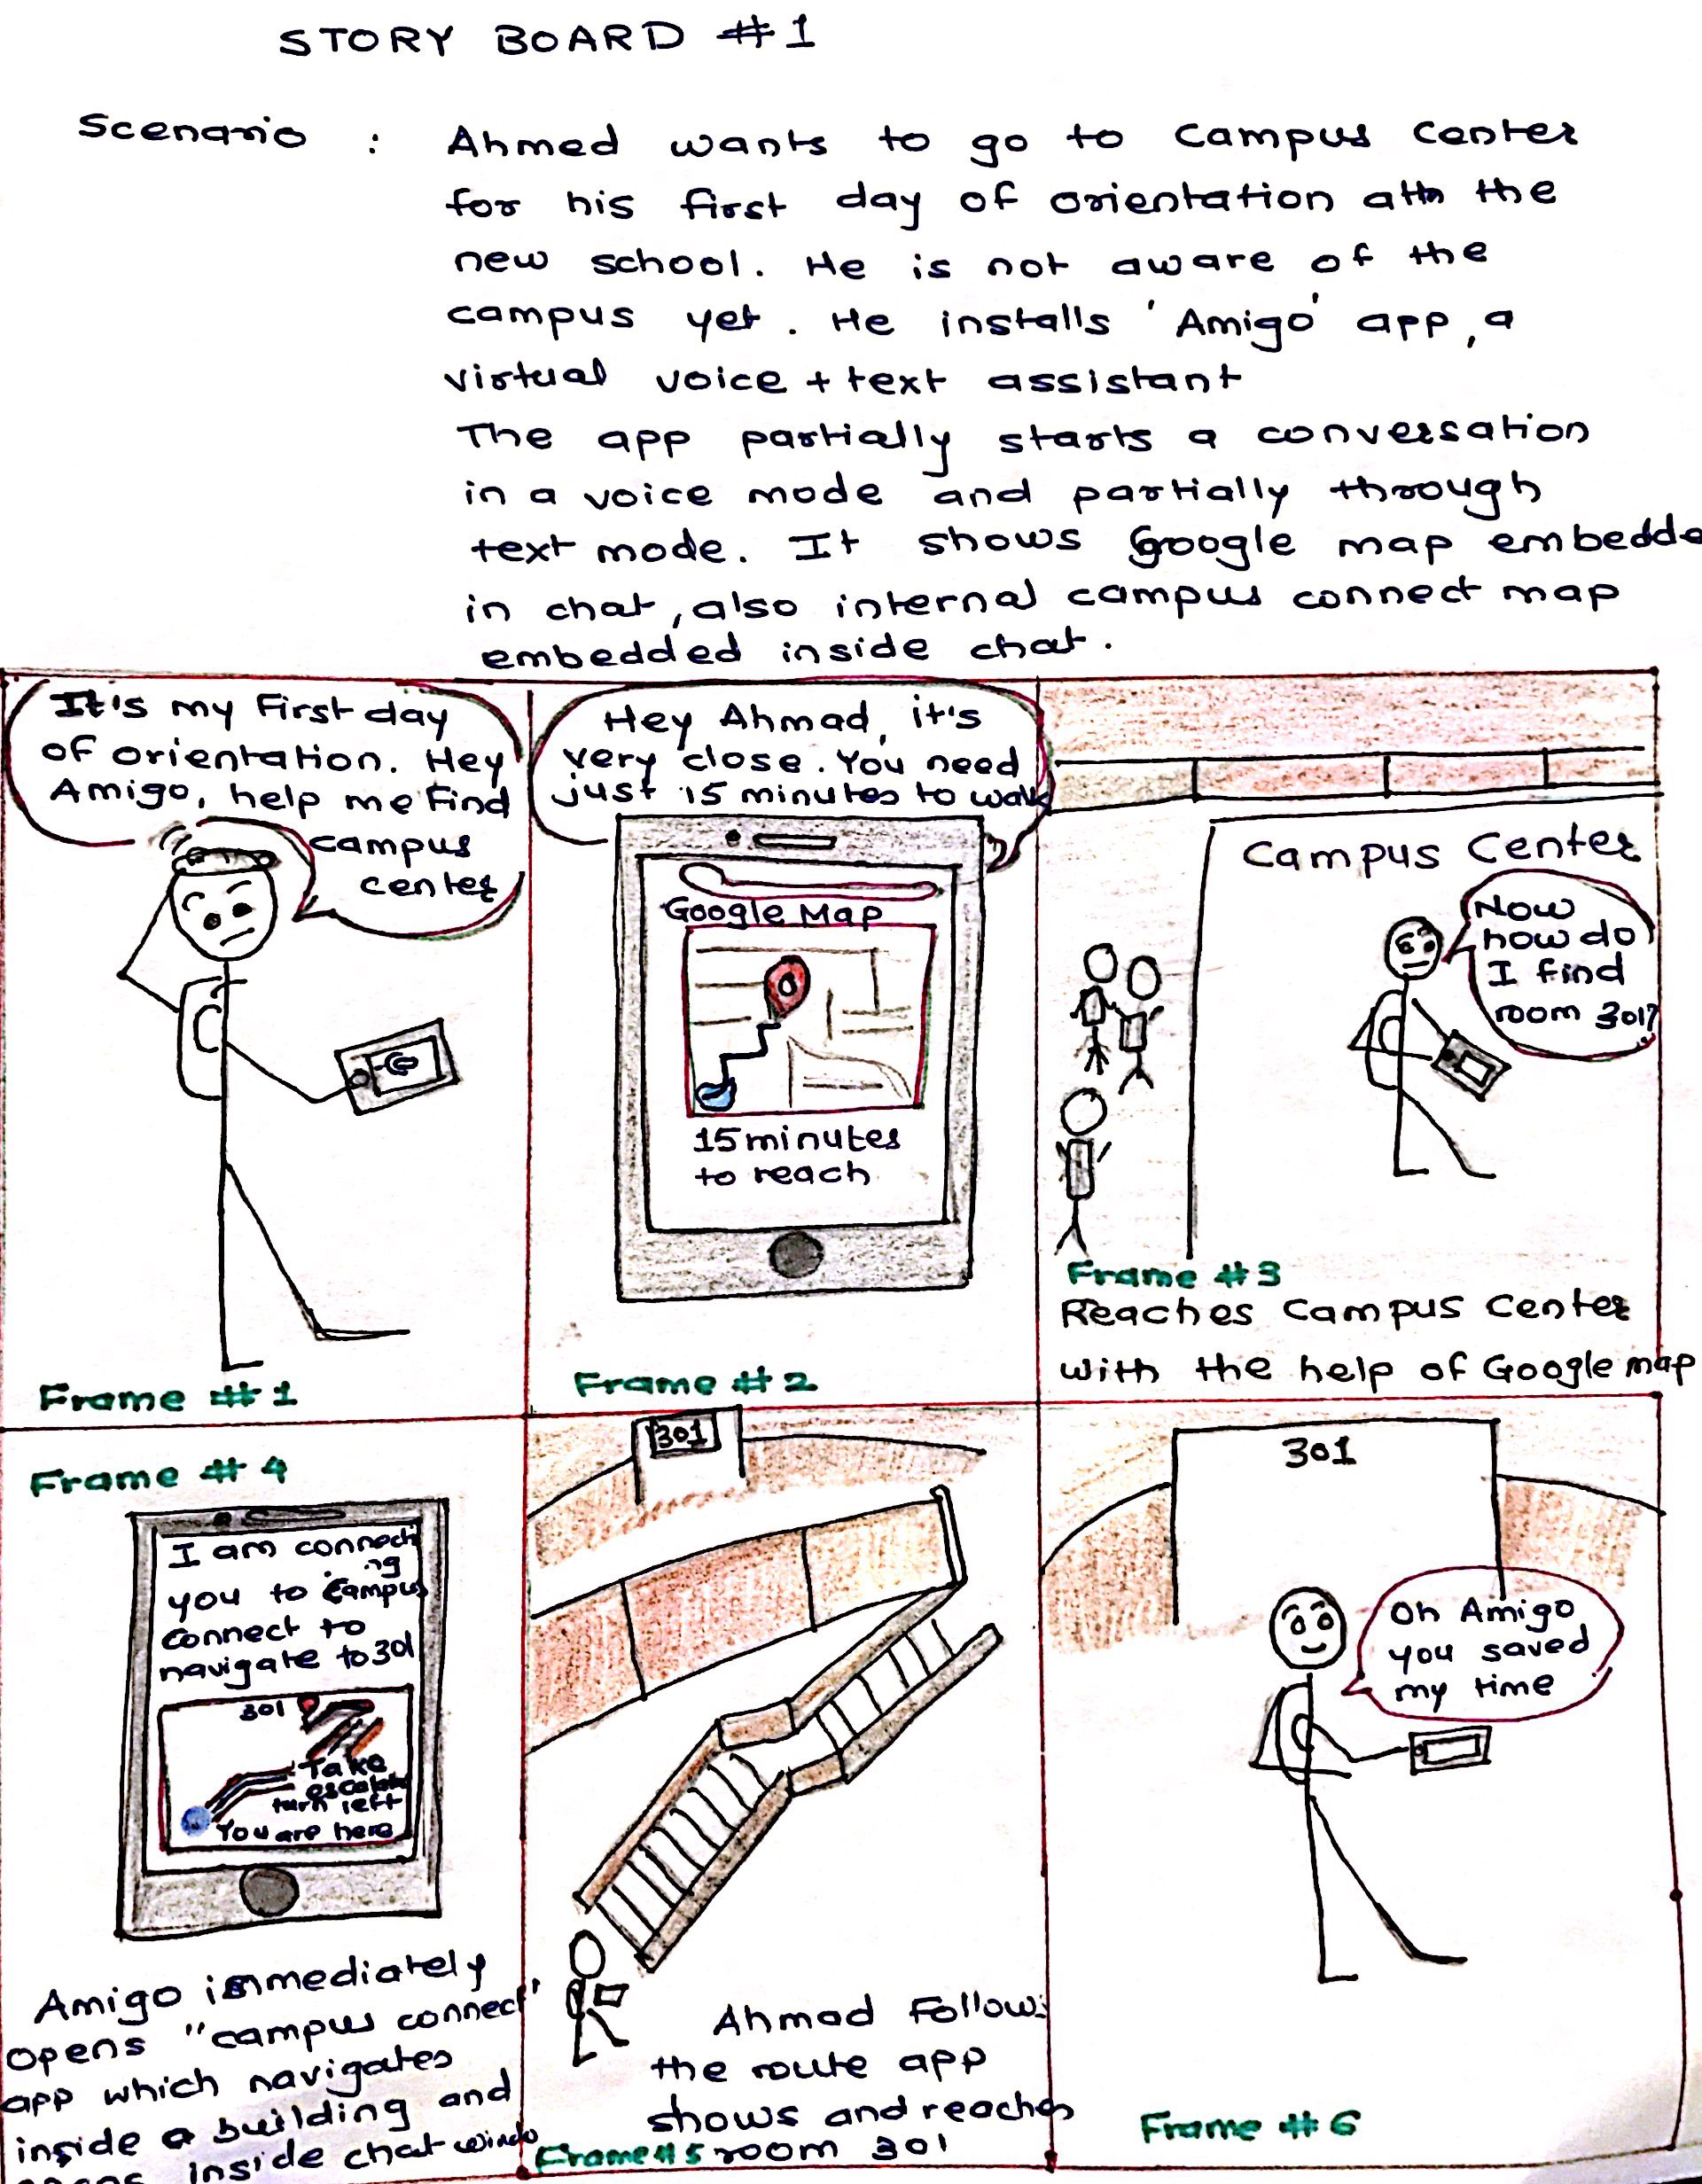 STORY BOARD #1
Scenario : Ahmed wants to go to Campus Center
for his first day of orientation at the
new school. He is not aware of the
campus yet. He installs 'Amigo' app, a
virtual voice + text assistant
The app partially starts a conversation
in a voice mode and partially through
text mode. It shows Google map embedde
in chat, also internal campus connect map
embedded inside chat.
It's my First day
of orientation. Hey
Amigo, help me find
campus
center
Frame #1
Hey Ahmad, it's
very close. You need
just 15 minutes to walk
Google Map
15 minutes
to reach
Frame #2
Campus Center
Now
how do
I find
room 301?
Frame #3
Reaches Campus Center
with the help of Google map
Frame #4
I am connecting
you to campus
connect to
navigate to 301
301
Take
turn left
You are here
Amigo immediately
opens "campus connect"
app which navigates
inside a building and
inside chat windo
301
Ahmad Follows
the route app
shows and reaches
room 301
Frame #5
301
Oh Amigo
you saved
my time
Frame #6